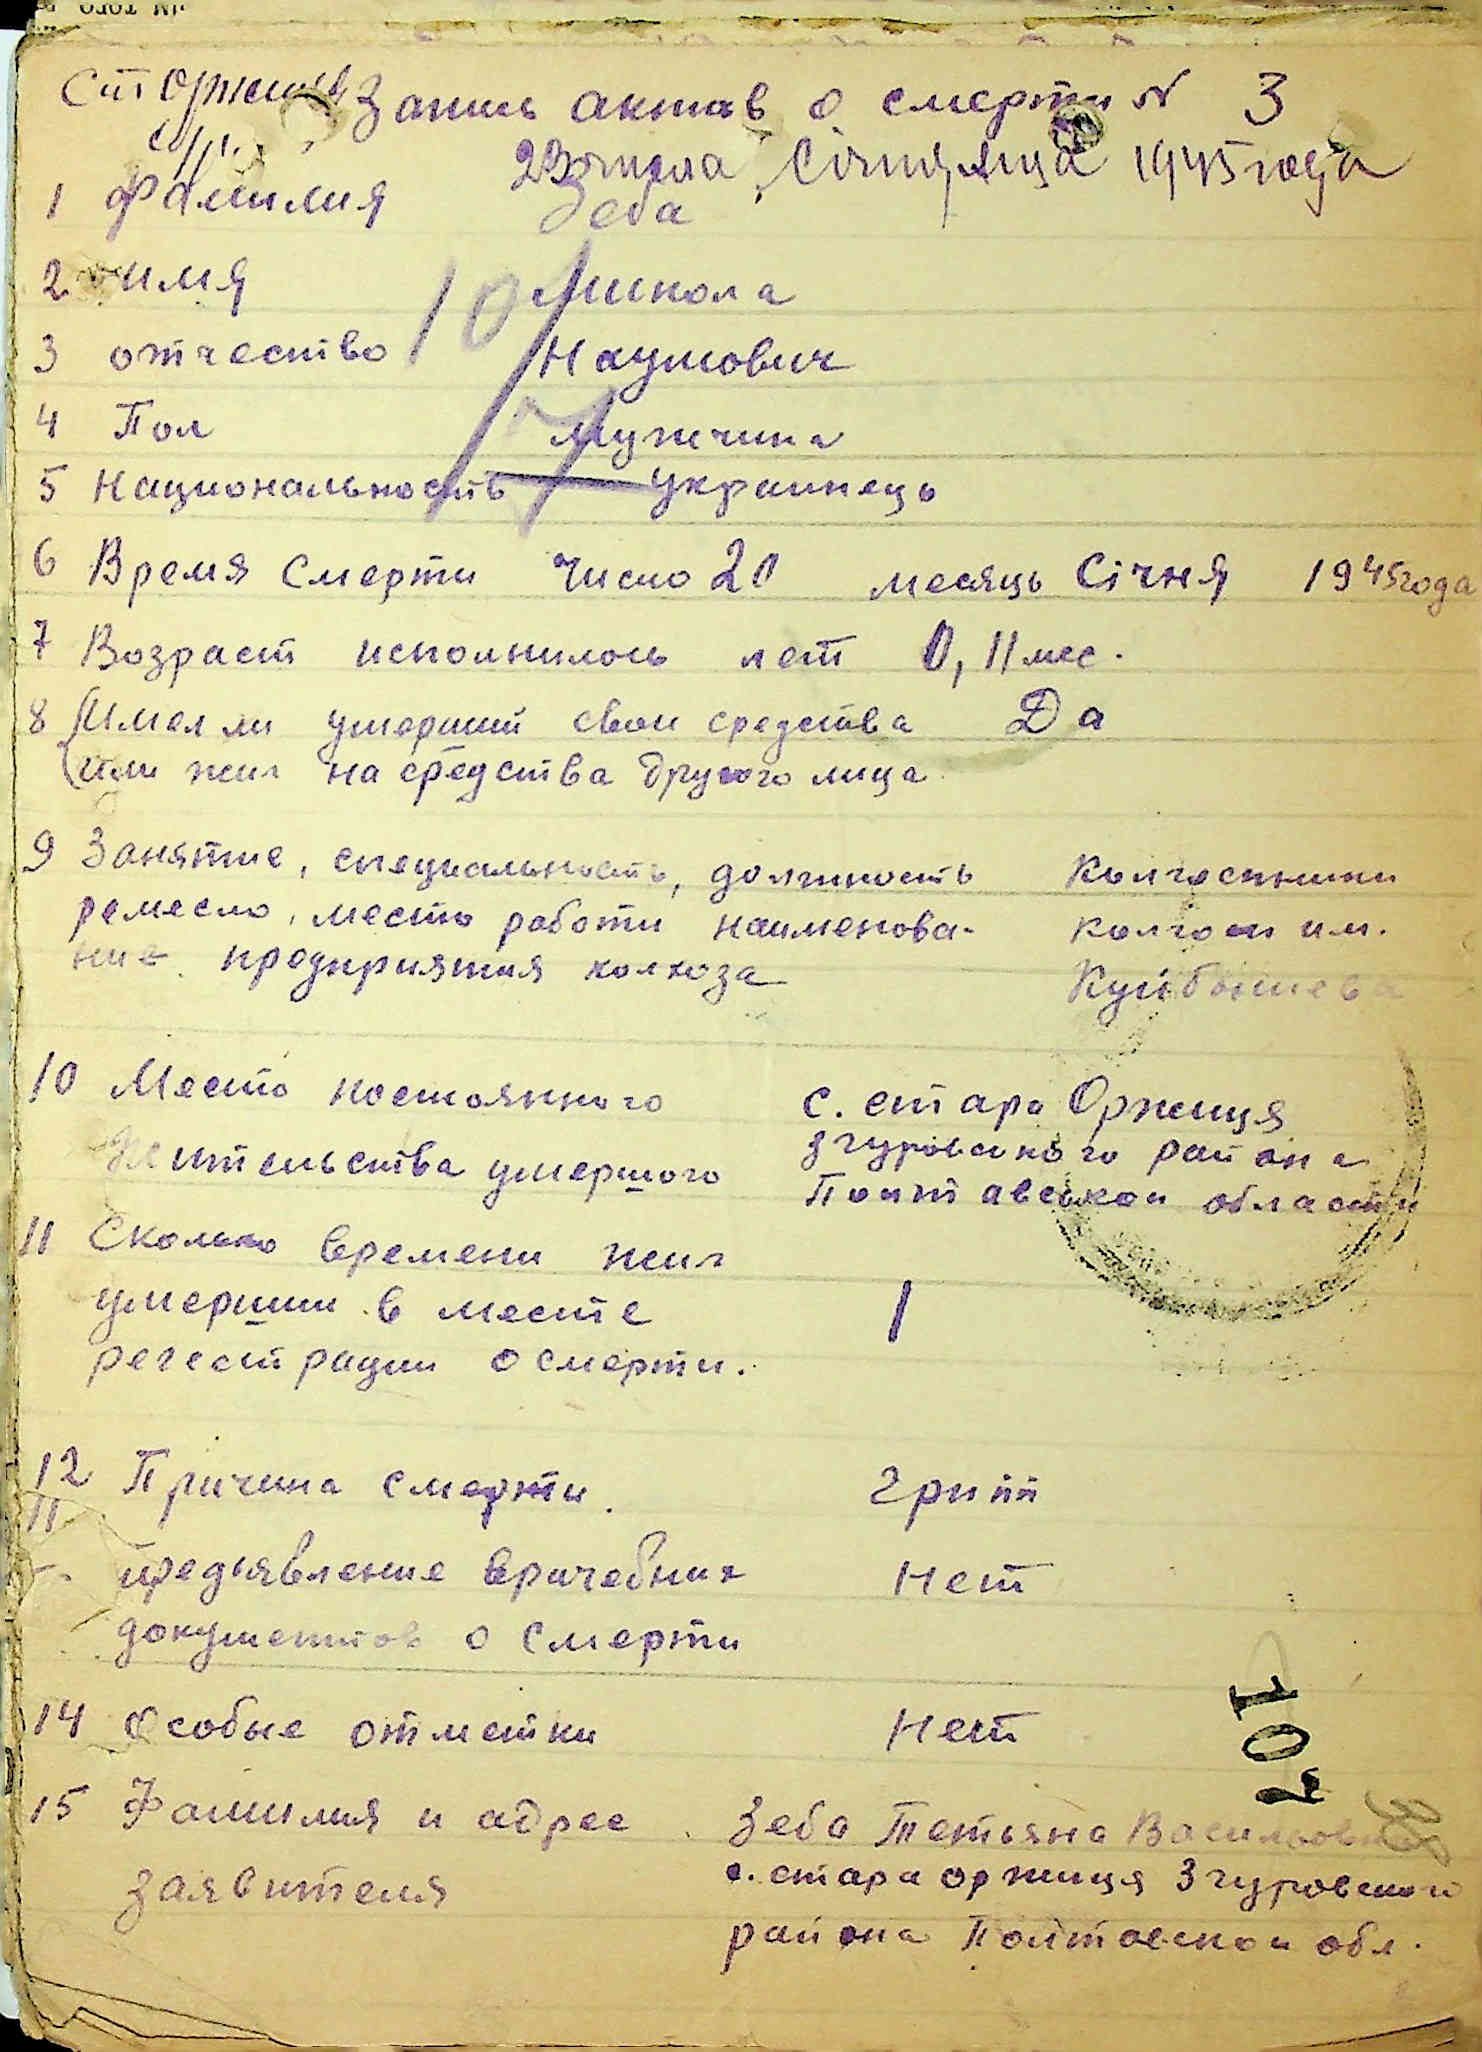 Ст Оржиця Запись актав о смерти N 3
23 числа Січня мця 1945 года
1 Фамилия Зеба
2 имя Микола
3 отчество Наумович
4 Пол мужчина
5 Национальность Украинець
6 Время смерти Число 20 месяць Січня 1945 года
7 Возраст исполнилось лет 0, 11 мес.
8 Имел ли умерший свои средства Да
или жил на средства другого лица
9 Занятие, специальность, должность Колгоспники
ремесло, место работи наименова- колгосп им.
ние предприятия колхоза Куйбышева
10 Место постоянного с. стара Оржиця
жительства умершого Згуровского района
Полтавськои области
11 Сколько времени жил
умерший в месте 1
регестрации о смерти.
12 Причина смерти. Грипп
предъявление врачебних Нет
документов о смерти
14 Особые отметки Нет
15 Фамилия и адрес Зеба Тетьяна Васильовна
заявителя с. стара оржиця Згуровского
района Полтавской обл.
107